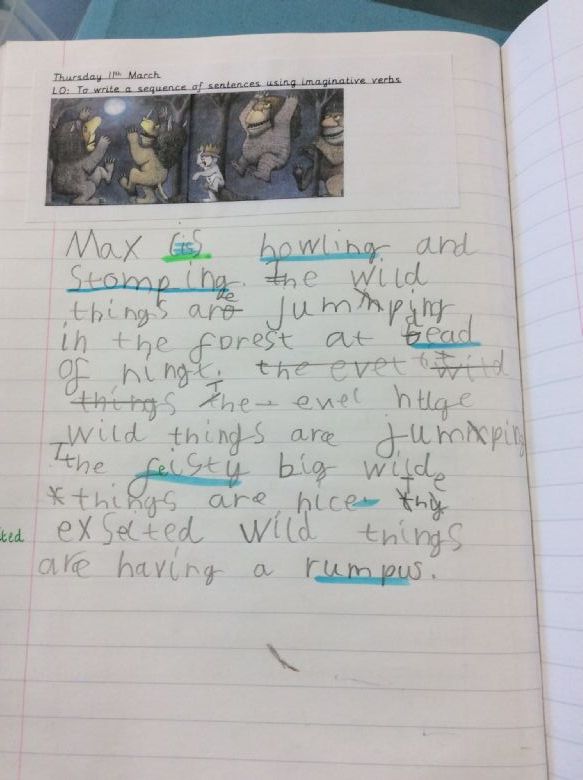 Thursday 11th March
LO: To write a sequence of sentences using imaginative verbs
Max is howling and
Stomping. The wild
things are jumping
in the forest at dead
of hingt. the evet wild
things The evel huge
wild things are jumping
The feisty big wilde
*things are nice The
ted exseted wild things
are having a rumpus.